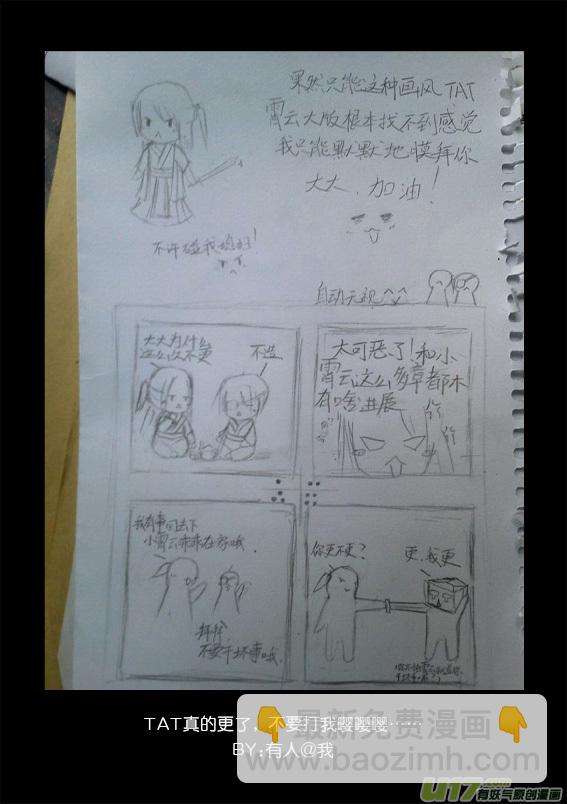 果然只能这种画风TAT
霄云大版根本找不到感觉
我只能默默地膜拜你
大大、加油！
不许碰我媳妇！
自动无视^^
大大为什么
这么久不更
不造
太可恶了！和小
霄云这么多章都木
有啥进展
哼
哼
我有事回去下
小霄云乖乖在家哦.
拜拜
不要干坏事哦.
你更不更？
更,我更
TAT真的更了，不要打我嘤嘤嘤……
BY:有人@我
最新免费漫画
www.baozimh.com
U17.com
有妖气原创漫画